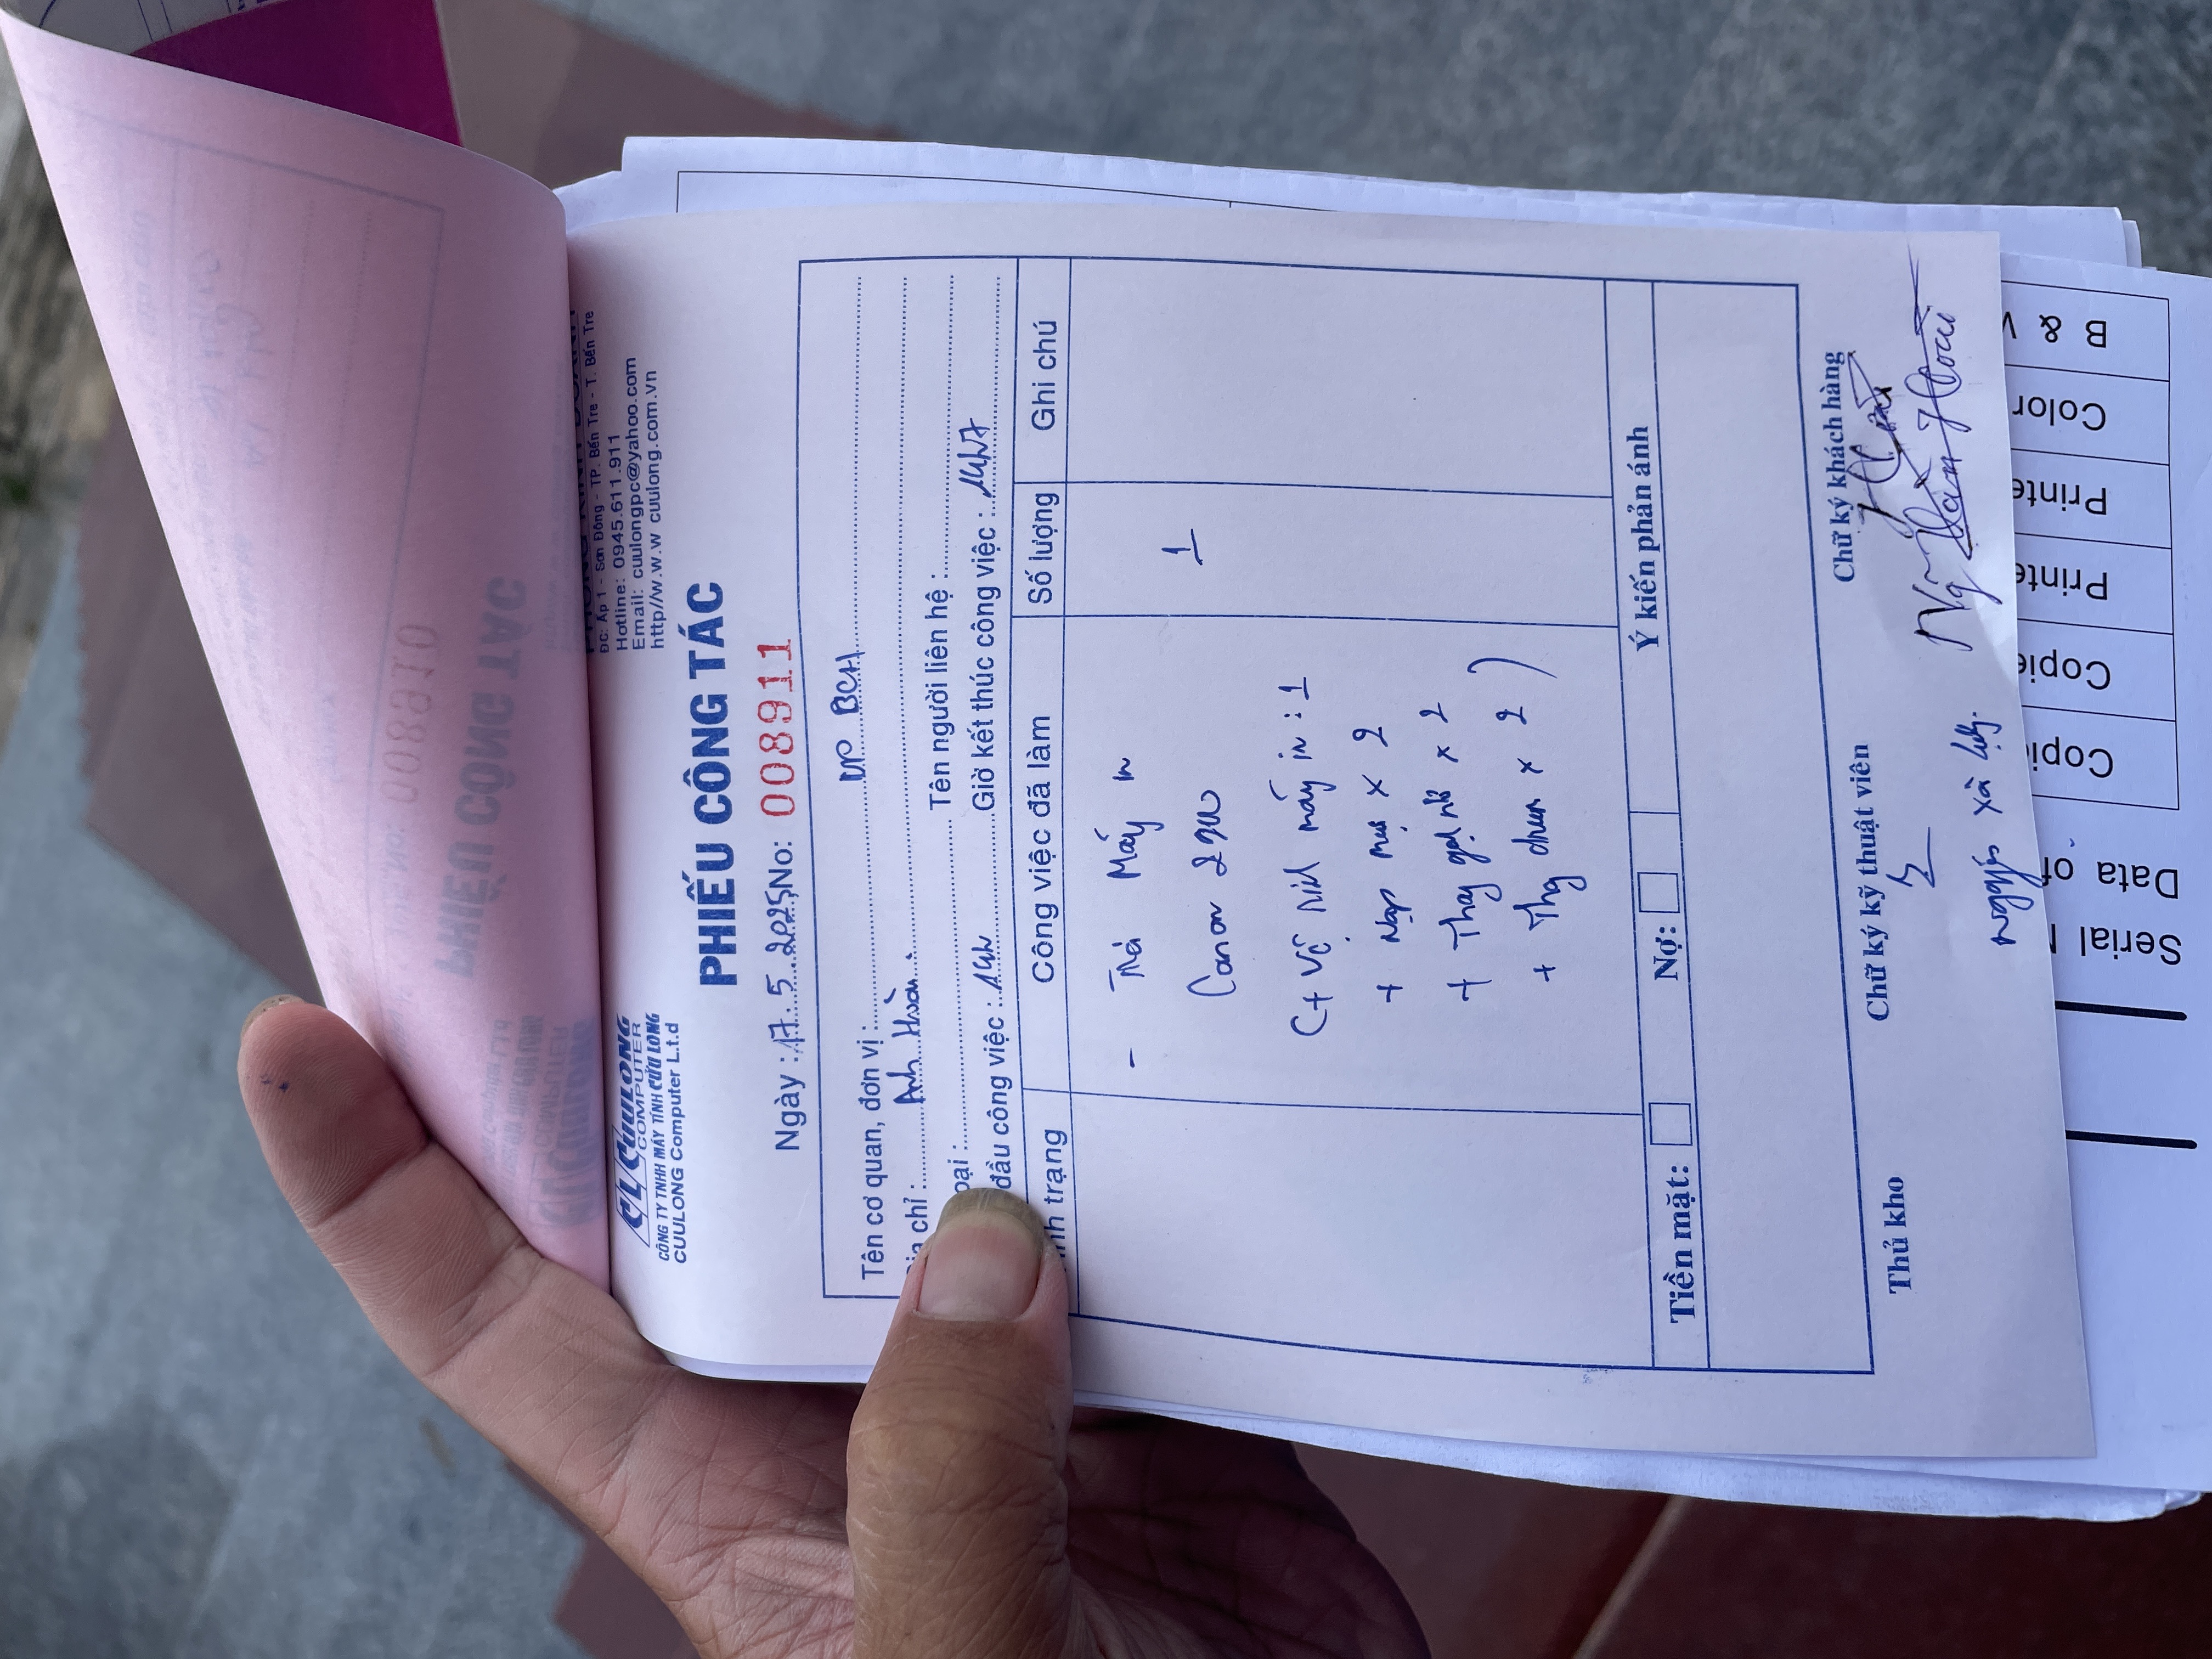 CL CUULONG
COMPUTER
CÔNG TY TNHH MÁY TÍNH CỬU LONG
CUULONG Computer L.t.d
PHÒNG KINH DOANH
ĐC: Ấp 1 - Sơn Đông - TP. Bến Tre - T. Bến Tre
Hotline: 0945.611.911
Email: cuulongpc@yahoo.com
http//w.w.w cuulong.com.vn
PHIẾU CÔNG TÁC
Ngày : 17.5.2025 No: 008911
Tên cơ quan, đơn vị : BCH
ịa chỉ : Anh
oại : Tên người liên hệ :
đầu công việc : 14h Giờ kết thúc công việc : 14h17
nh trạng Công việc đã làm Số lượng Ghi chú
- Trả Máy in 1
Canon 2900
(+ Vệ sinh máy in : 1
+ Nạp mực x 2
+ Thay gạt x 2
+ Thay drum x 2 )
Tiền mặt: Nợ: Ý kiến phản ánh
Thủ kho Chữ ký kỹ thuật viên Chữ ký khách hàng
B &
Color
Printe
Printe
Copie
Copi
Data of
Serial
008910
PHIẾU CÔNG TÁC